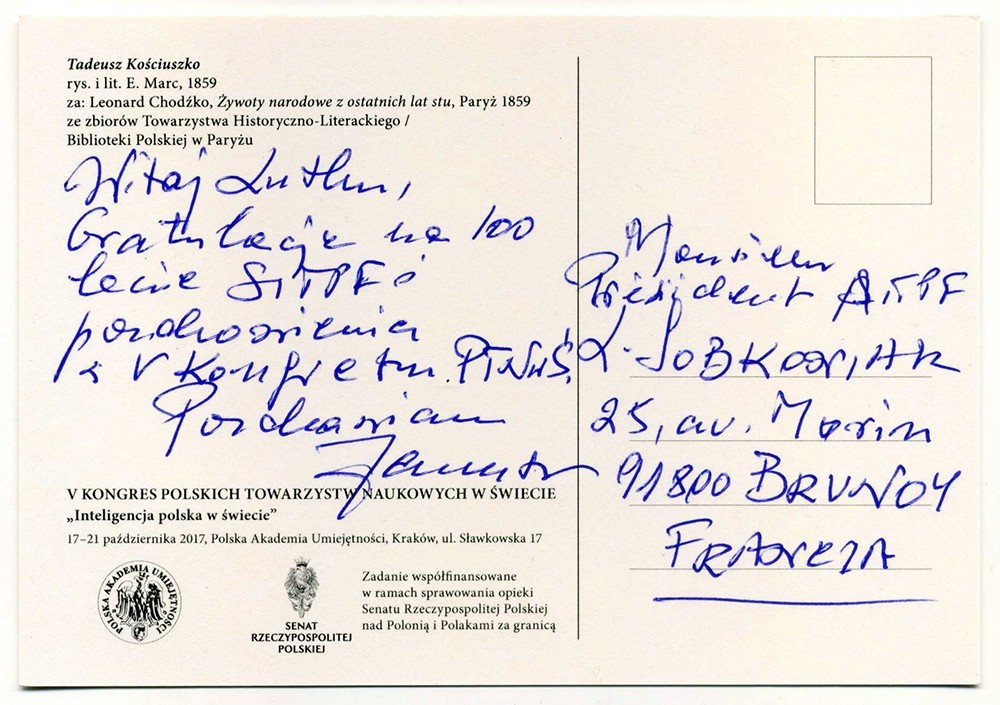 Tadeusz Kościuszko
rys. i lit. E. Marc, 1859
za: Leonard Chodźko, Żywoty narodowe z ostatnich lat stu, Paryż 1859
ze zbiorów Towarzystwa Historyczno-Literackiego /
Biblioteki Polskiej w Paryżu
Witaj
Gratulacje na 100
lecie SITPF i
pozdrowienia
z V Kongresu PTNwŚ.
Pozdrawiam
Janusz
V KONGRES POLSKICH TOWARZYSTW NAUKOWYCH W ŚWIECIE
„Inteligencja polska w świecie”
17–21 października 2017, Polska Akademia Umiejętności, Kraków, ul. Sławkowska 17
POLSKA AKADEMIA UMIEJĘTNOŚCI
SENAT
RZECZYPOSPOLITEJ
POLSKIEJ
Zadanie współfinansowane
w ramach sprawowania opieki
Senatu Rzeczypospolitej Polskiej
nad Polonią i Polakami za granicą
Monsieur
President AITPF
L. SOBKOWIAK
25, av. Morin
91800 BRUNOY
FRANCJA